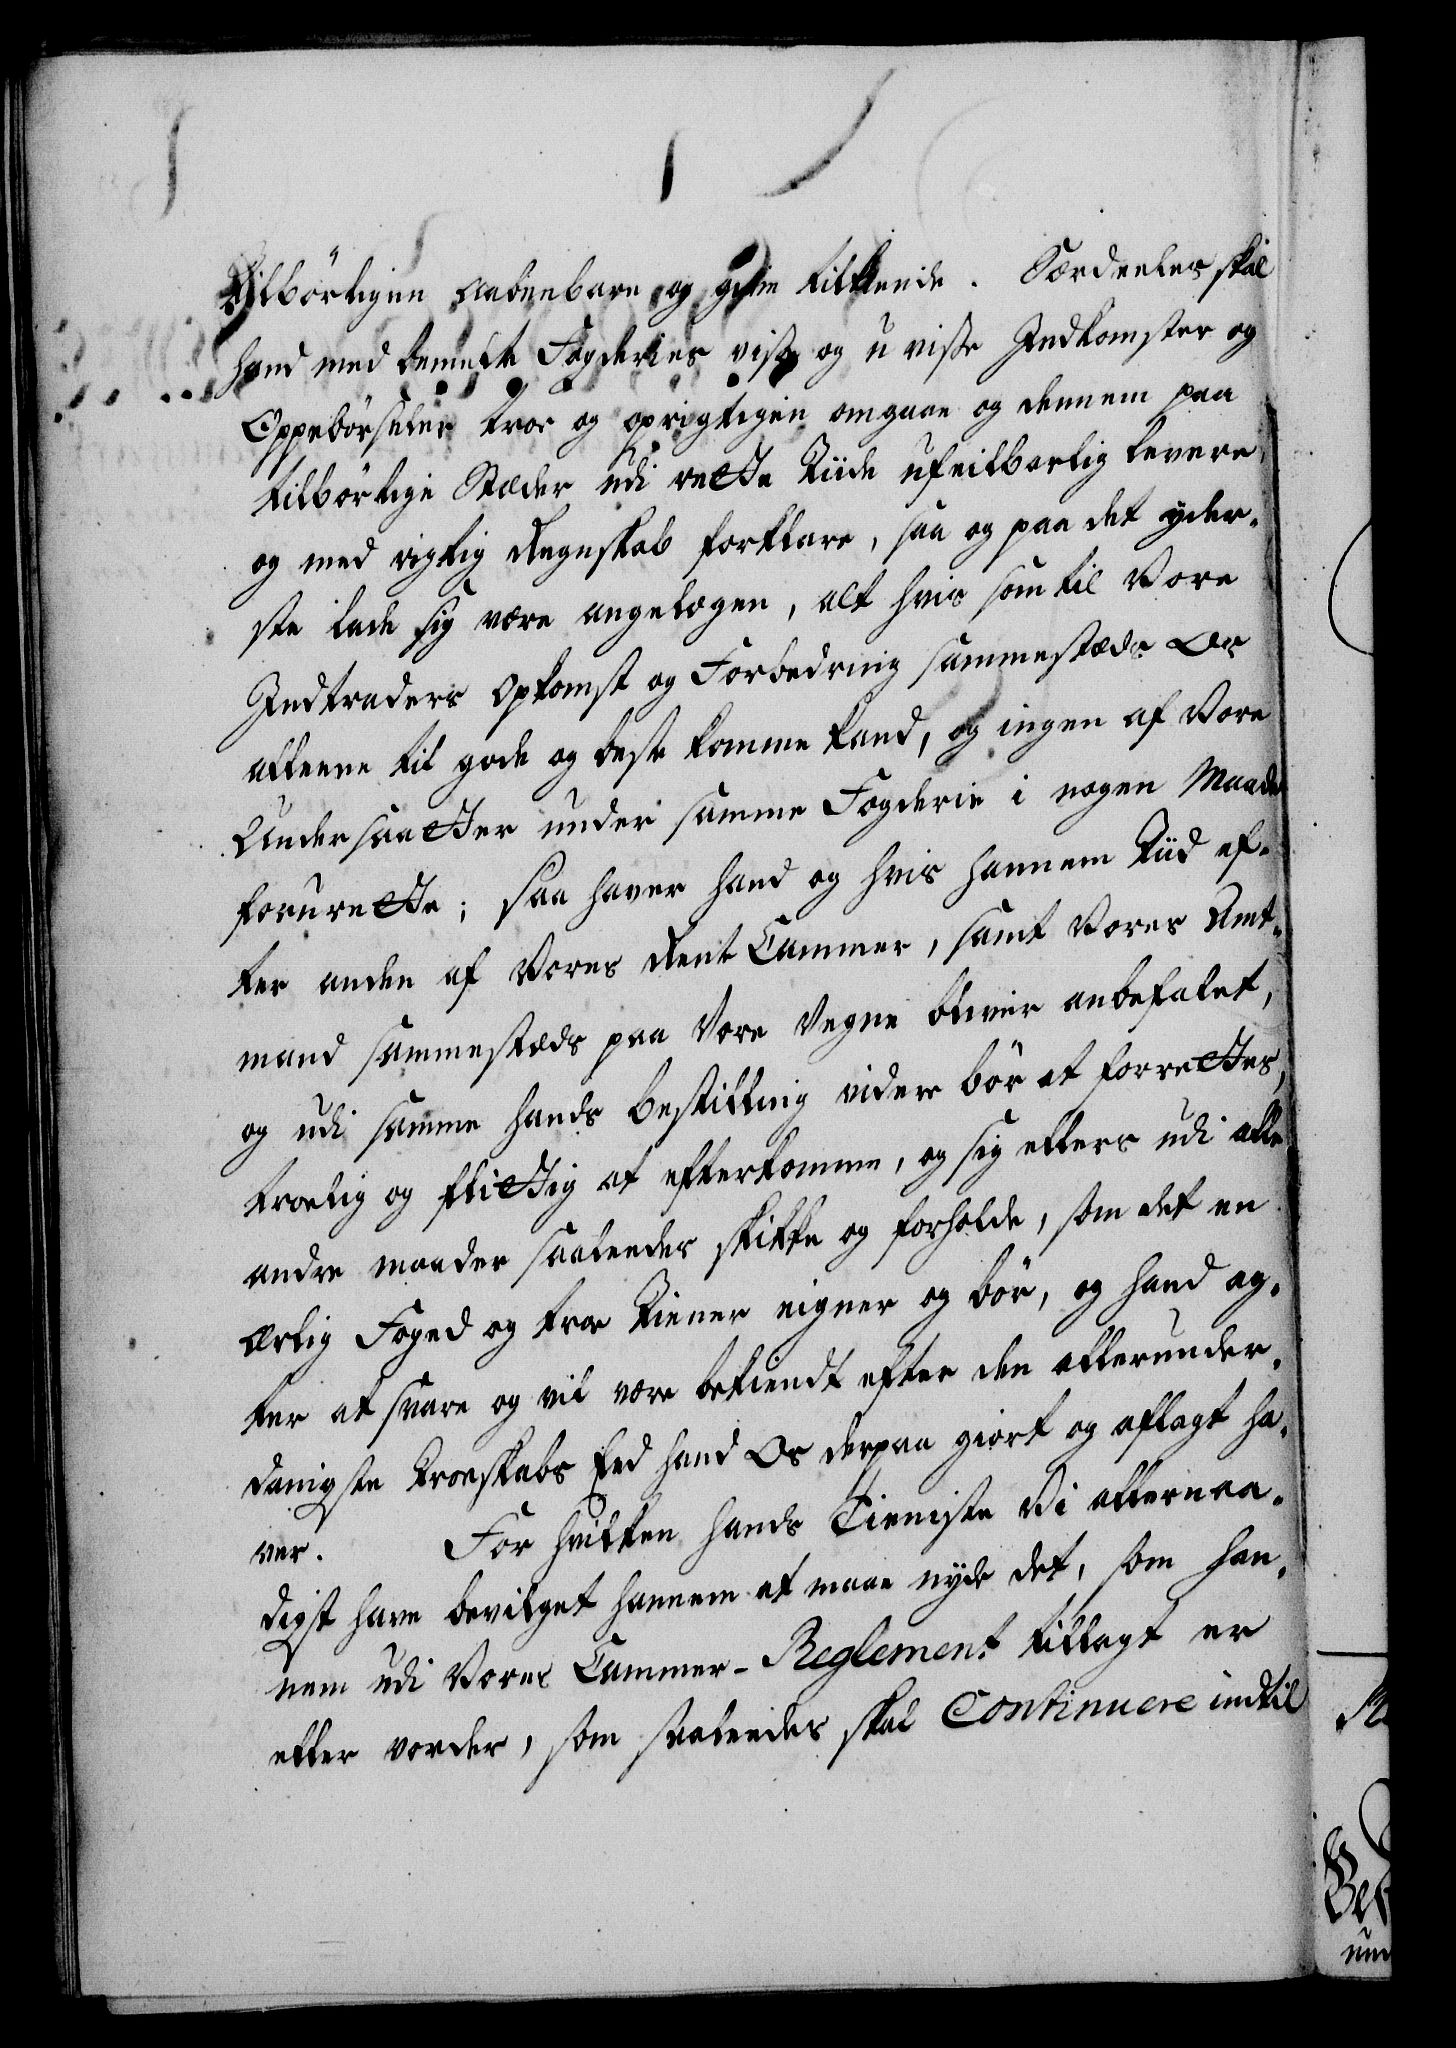 Tilbörligen aabenbare og give tilkiende. Særdeeles skal
hand med bemelte Fogderies visse og u visse Indkomster og
Oppebörseler troe og oprigtigen omgaae og dennem paa
tilbörlige Stæder udi rette Tiide ufeilbarlig levere
og med rigtig Regnskab forklare, saa og paa det yder-
ste lade sig være angelegen, alt hvis som til Vore
Indtraders Opkomst og Forbedring sammestæds Os
alleene til gode og beste komme kand, og ingen af Vore
Undersaatter under samme Fogderie i nogen Maade
forurette; saa haver hand og hvis hannem Tiid ef-
ter anden af Vores Rente Cammer, samt Vores Amt-
mand sammestæds paa Vore Vegne bliver anbefalet,
og udi samme hands bestilling videre bör at forrettes,
troelig og flittig at efterkomme, og sig ellers udi alle
andre maader saaleedes skikke og forholde, som det en
ærlig Foged og troe Tiener eigner og bör, og hand ag-
ter at svare og vil være bekiendt efter den allerunder-
danigste Troeskabs Eed hand Os derpaa giort og aflagt ha-
ver. For hvilken hands Tieniste Vi allernaa-
digst have bevilget hannem at maae nyde det, som han-
nem udi Vores Cammer-Reglement tillagt er
eller vorder, som saaleedes skal Continuere indtil